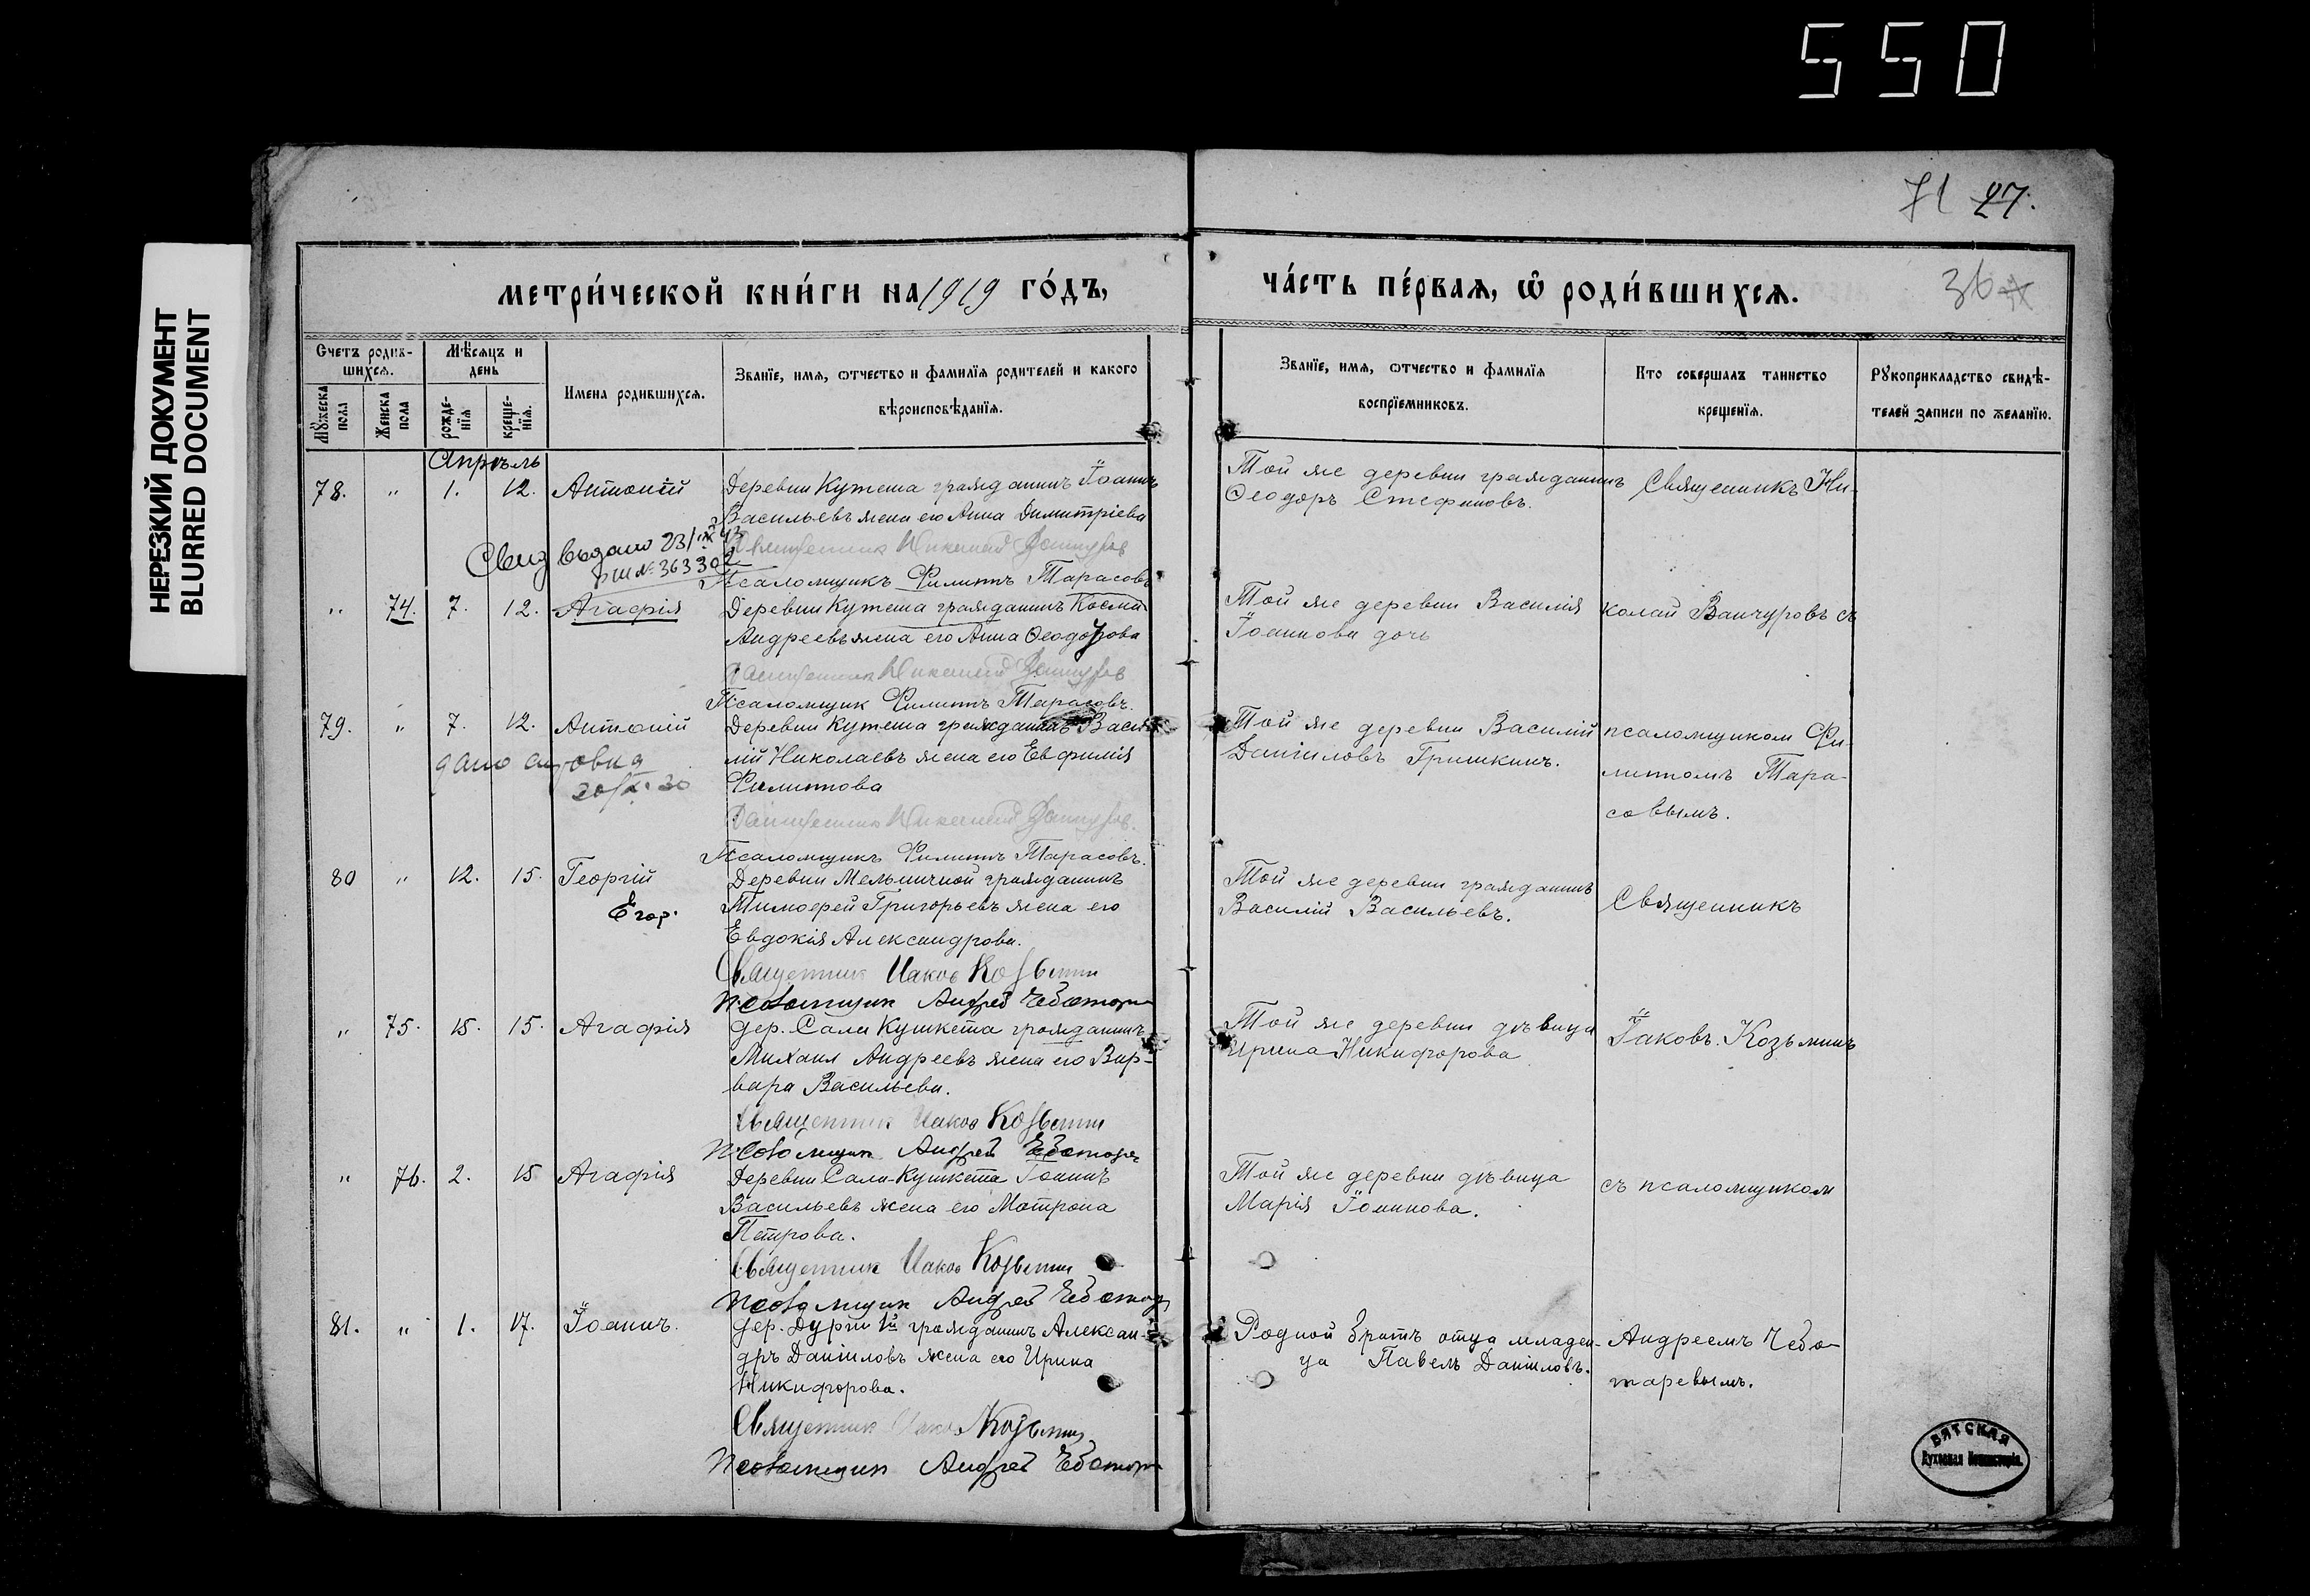 550
НЕРЕЗКИЙ ДОКУМЕНТ
BLURRED DOCUMENT
71 27.
МЕТРИ́ЧЕСКОЙ КНИ́ГИ НА 1919 ГО́ДЪ,
ЧА́СТЬ ПЕ́РВАЯ, Ѡ҃ РОДИ́ВШИХСЯ.
36
Счетъ родив-
шихся.
Мѣсяцъ и
день
Мꙋжеска
пола
Женска
пола
рожде-
нїя
креще-
нїя.
Имена родившихся.
Званїе, имя, ѻтчество и фамилїя родителей и какого
вѣроисповѣданїя.
Званїе, имя, ѻтчество и фамилїя
воспрїемниковъ.
Кто совершалъ таинство
крещенїя.
Рꙋкоприкладство свидѣ-
телей записи по желанїю.
Апрѣль
78. " 1. 12. Антоній
Деревни Кутеша гражданинъ Іоаннъ
Васильевъ жена его Анна Димитріева
Священникъ Николай Ванчуров
Псаломщикъ Филиппъ Тарасовъ
Свид выдано 23/
№ 36330
Той же деревни гражданинъ
Ѳеодоръ Стефановъ.
Священникъ Ни-
" 74. 7. 12. Агафія
Деревни Кутеша гражданинъ Косма
Андреевъ жена его Анна Ѳеодорова
Священникъ Николай Ванчуров
Псаломщик Филиппъ Тарасовъ.
Той же деревни Василія
Іоаннова дочь
колай Ванчуровъ съ
79. " 7. 12. Антоній
дано
20/X 30
Деревни Кутеша гражданинъ Васи-
лій Николаевъ жена его Евфимія
Филиппова
Священникъ Николай Ванчуров.
Псаломщикъ Филиппъ Тарасовъ.
Той же деревни Василій
Даніиловъ Гришкинъ.
псаломщиком Фи-
липпомъ Тара-
совымъ.
80 " 12. 15. Георгій
Егор.
Деревни Мельничной гражданинъ
Тимоѳей Григорьевъ жена его
Евдокія Александрова.
Священник Иаков Козьмин
Псаломщик Андрей Чеботарев
Той же деревни гражданинъ
Василій Васильевъ.
Священникъ
" 75. 15. 15. Агафія
дер. Сала Кушкета гражданинъ
Михаил Андреевъ жена его Вар-
вара Васильева.
Священник Иаков Козьмин
Псаломщик Андрей Чеботарев
Той же деревни дѣвица
Ирина Никифорова
Іаковъ. Козьминъ
" 76. 2. 15 Агафія
Деревни Сала-Кушкета Іоаннъ
Васильевъ жена его Матрона
Петрова.
Священник Иаков Козьмин
Псаломщик Андрей Чеботарев
Той же деревни дѣвица
Марія Іоаннова.
съ псаломщиком
81. " 1. 17. Іоаннъ.
дер. Дурги 1й гражданинъ Алексан-
дръ Даніиловъ жена его Ирина
Никифорова.
Священник Иаков Козьмин
Псаломщик Андрей Чеботарев
Родной братъ отца младен-
ца Павелъ Даніиловъ.
Андреемъ Чебо-
таревымъ.
ВЯТСКАЯ
Духовная Консисторія.